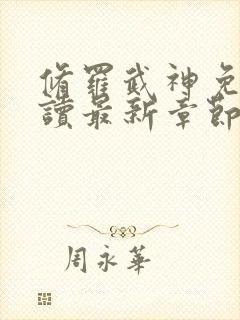 脩羅武神免
讀最新章節
周永華